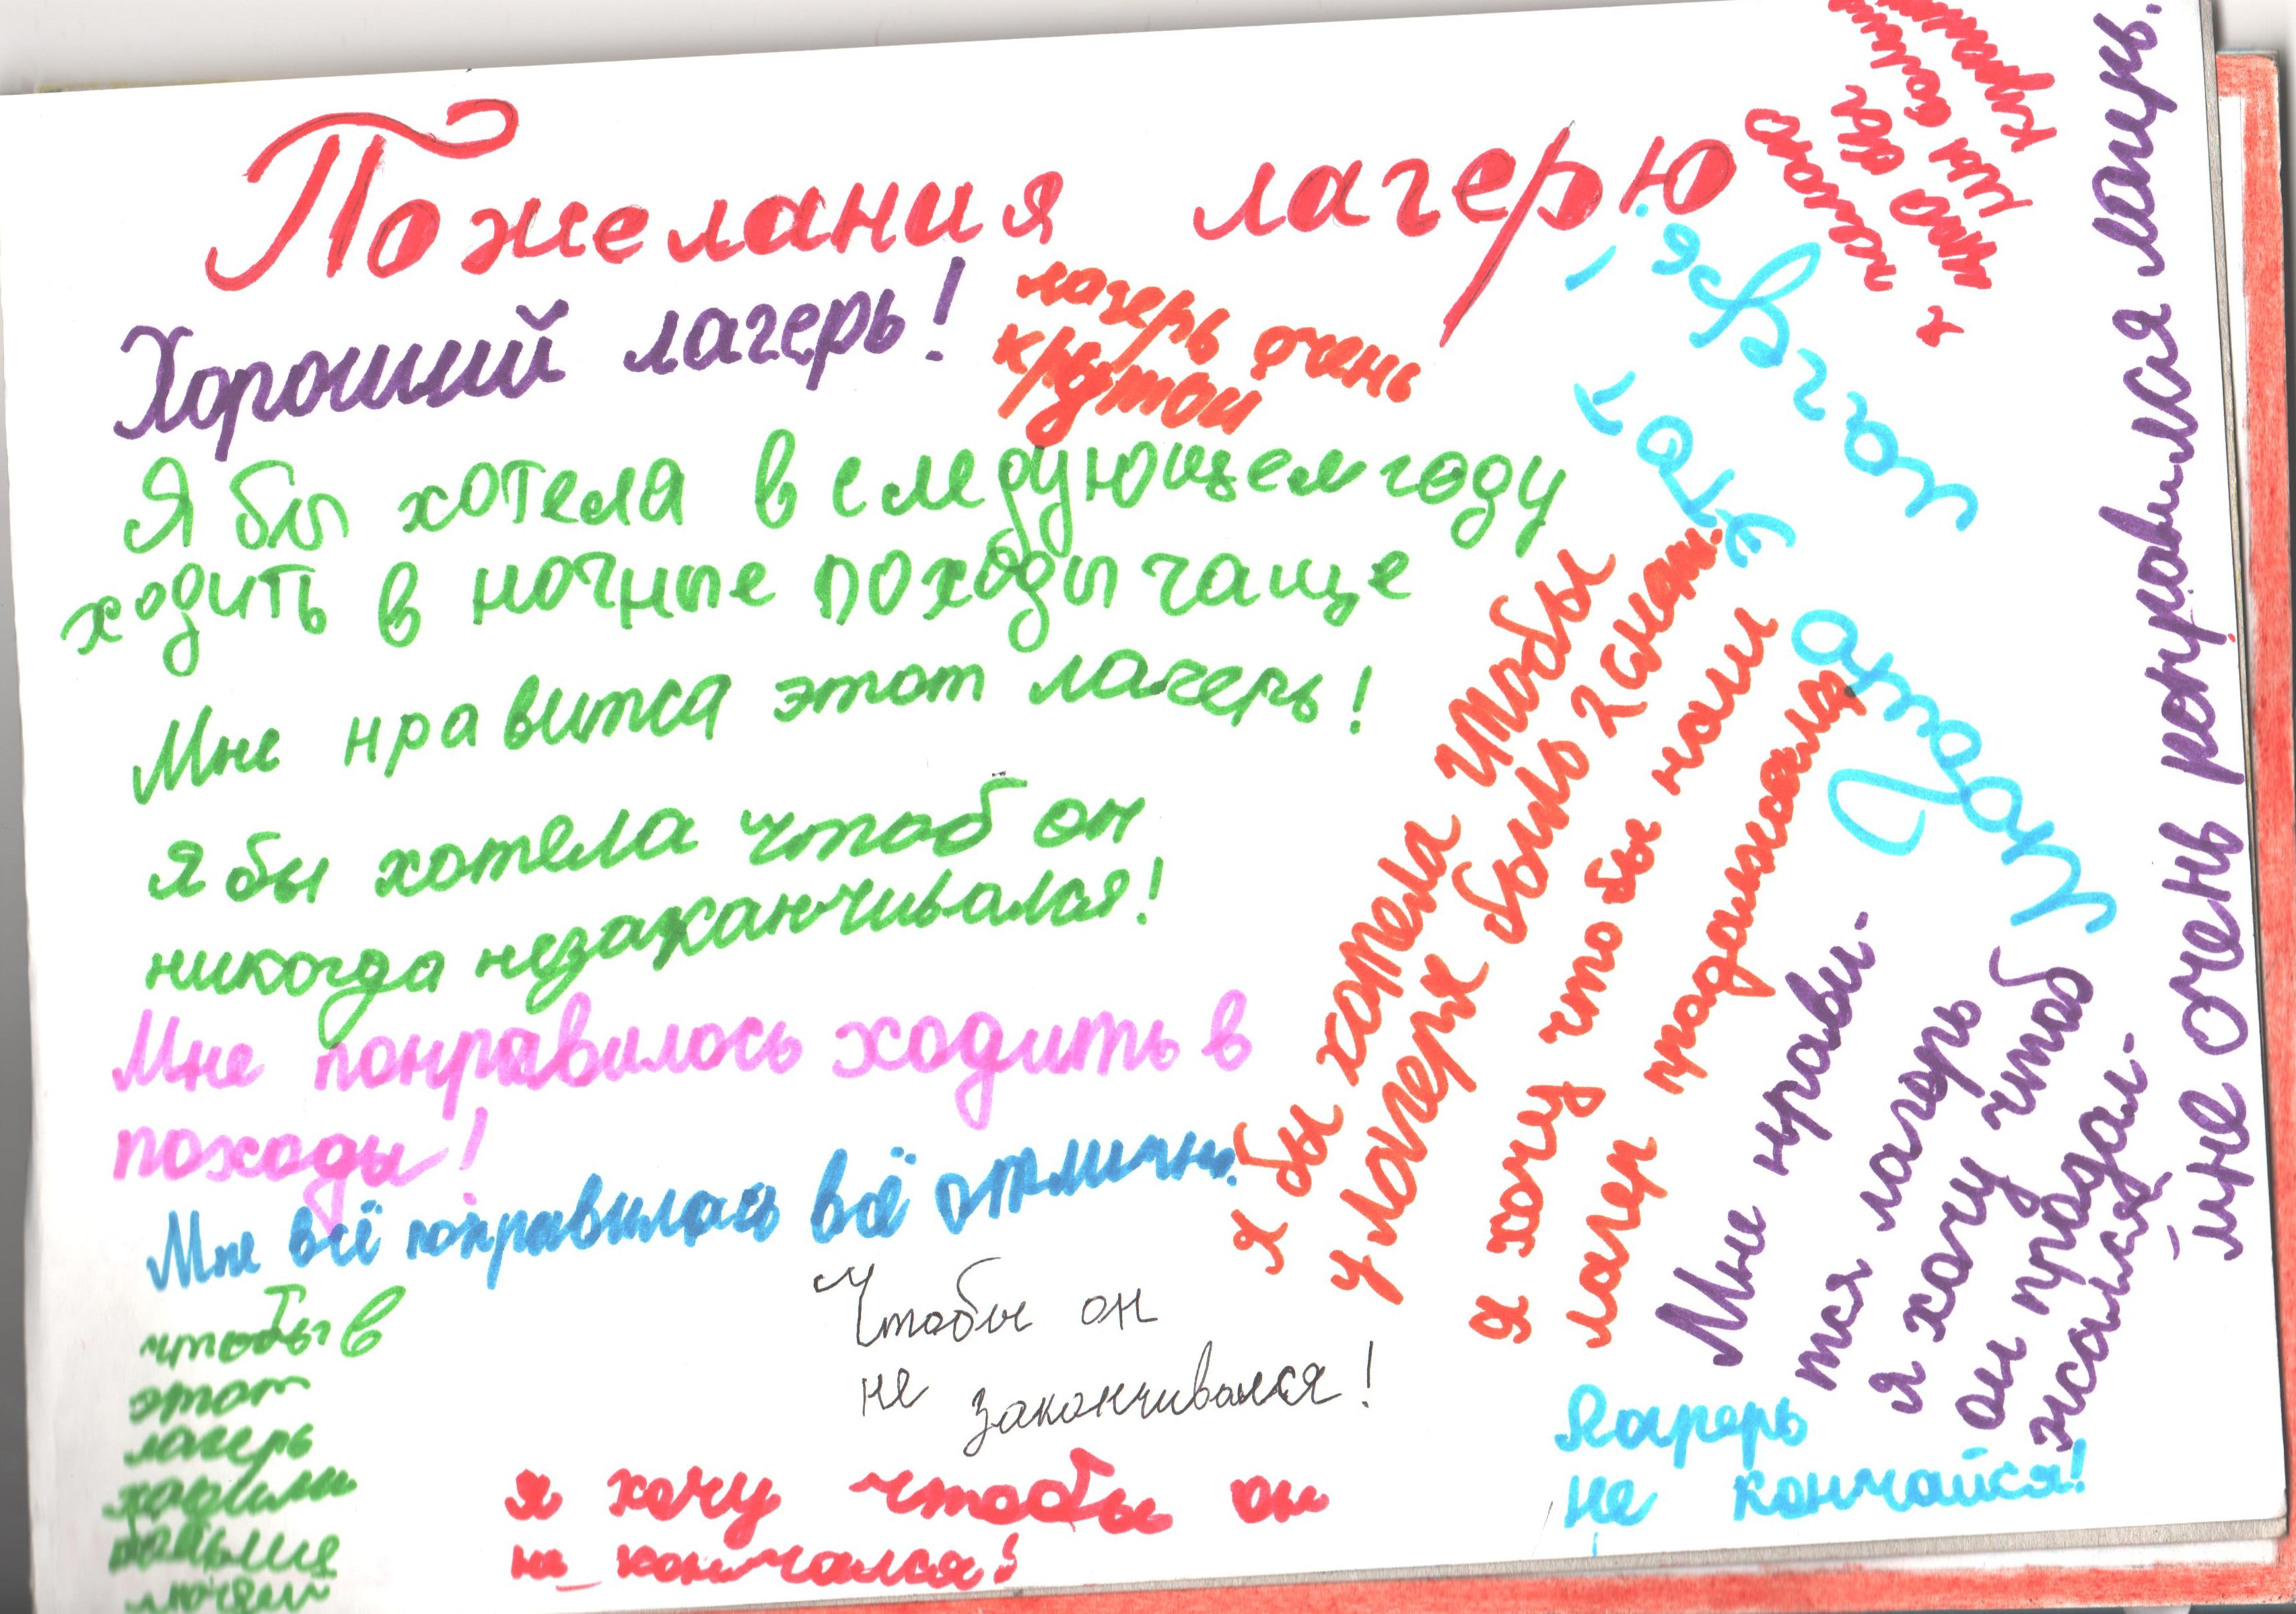 Пожелания лагерю
Хороший лагерь!
лагерь очень
крутой
Я бы хотела в следующем году
ходить в ночные походы чаще
Мне нравится этот лагерь!
Я бы хотела чтоб он
никогда незаканчивался!
Мне понравилось ходить в
походы!
Мне всё понравилось всё отлично.
чтобы в
этот
лагерь
ходили
больше
людей
Чтобы он
не заканчивался!
я хочу чтобы он
не кончался!
я бы хотела чтобы
у лагеря было 2 смен.
я хочу что бы наш
лагер продолжался
Мне нрави-
тся лагерь
я хочу чтоб
он продал-
жалься
лагерь
не кончайся!
Люблю
этот
лагерь!
я
что бы
мне очень понравился лагерь.